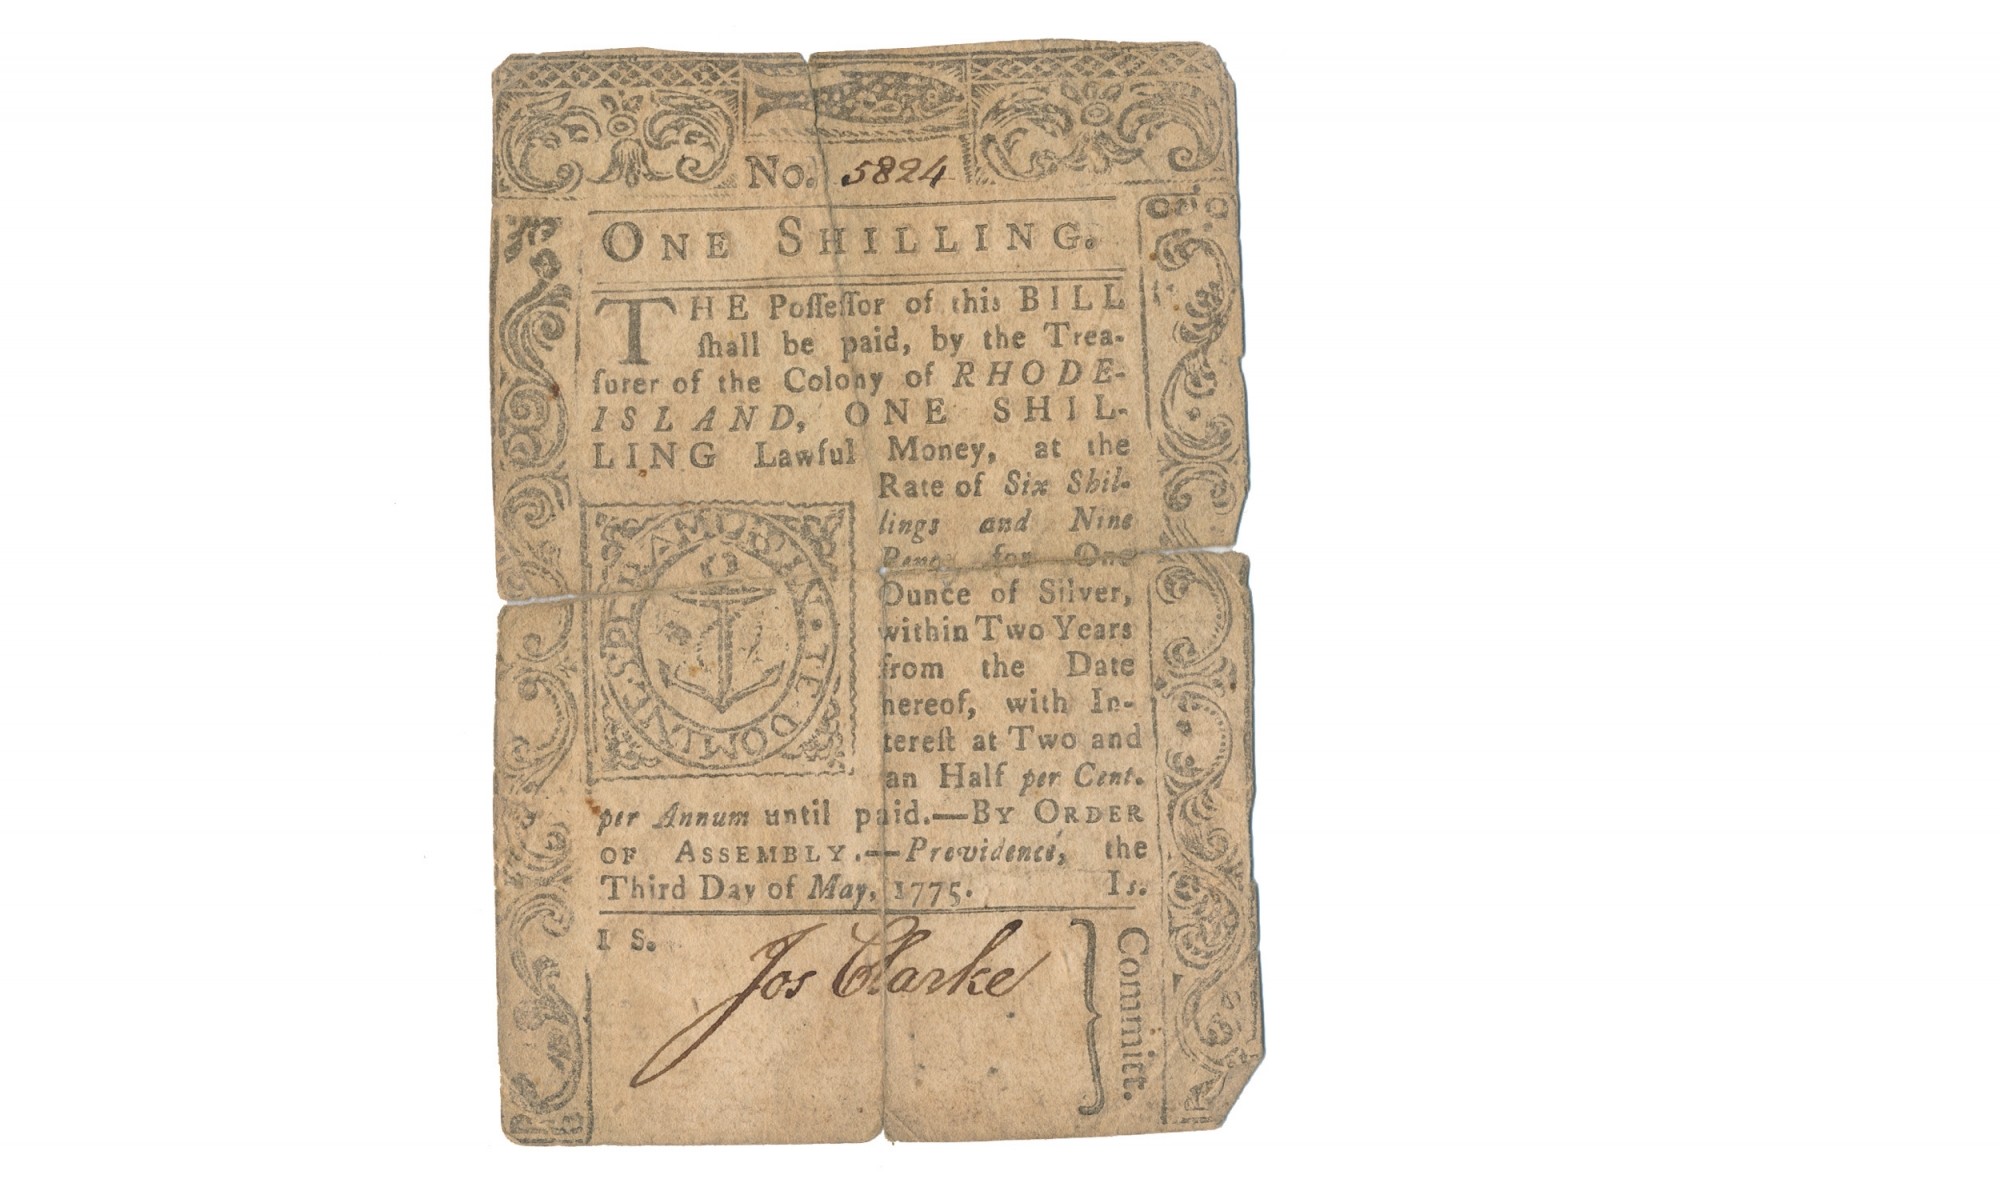 No. 5824
ONE SHILLING.
THE Poſſeſſor of this BILL
ſhall be paid, by the Trea-
ſurer of the Colony of RHODE-
ISLAND, ONE SHIL-
LING Lawful Money, at the
Rate of Six Shil-
lings and Nine
Penc for One
Ounce of Silver,
within Two Years
from the Date
hereof, with In-
tereſt at Two and
an Half per Cent.
per Annum until paid.—BY ORDER
OF ASSEMBLY.—Providence, the
Third Day of May, 1775. 1s.
IN TE DOMINE SPERAMUS
1 S.
Jos Clarke
Committ.